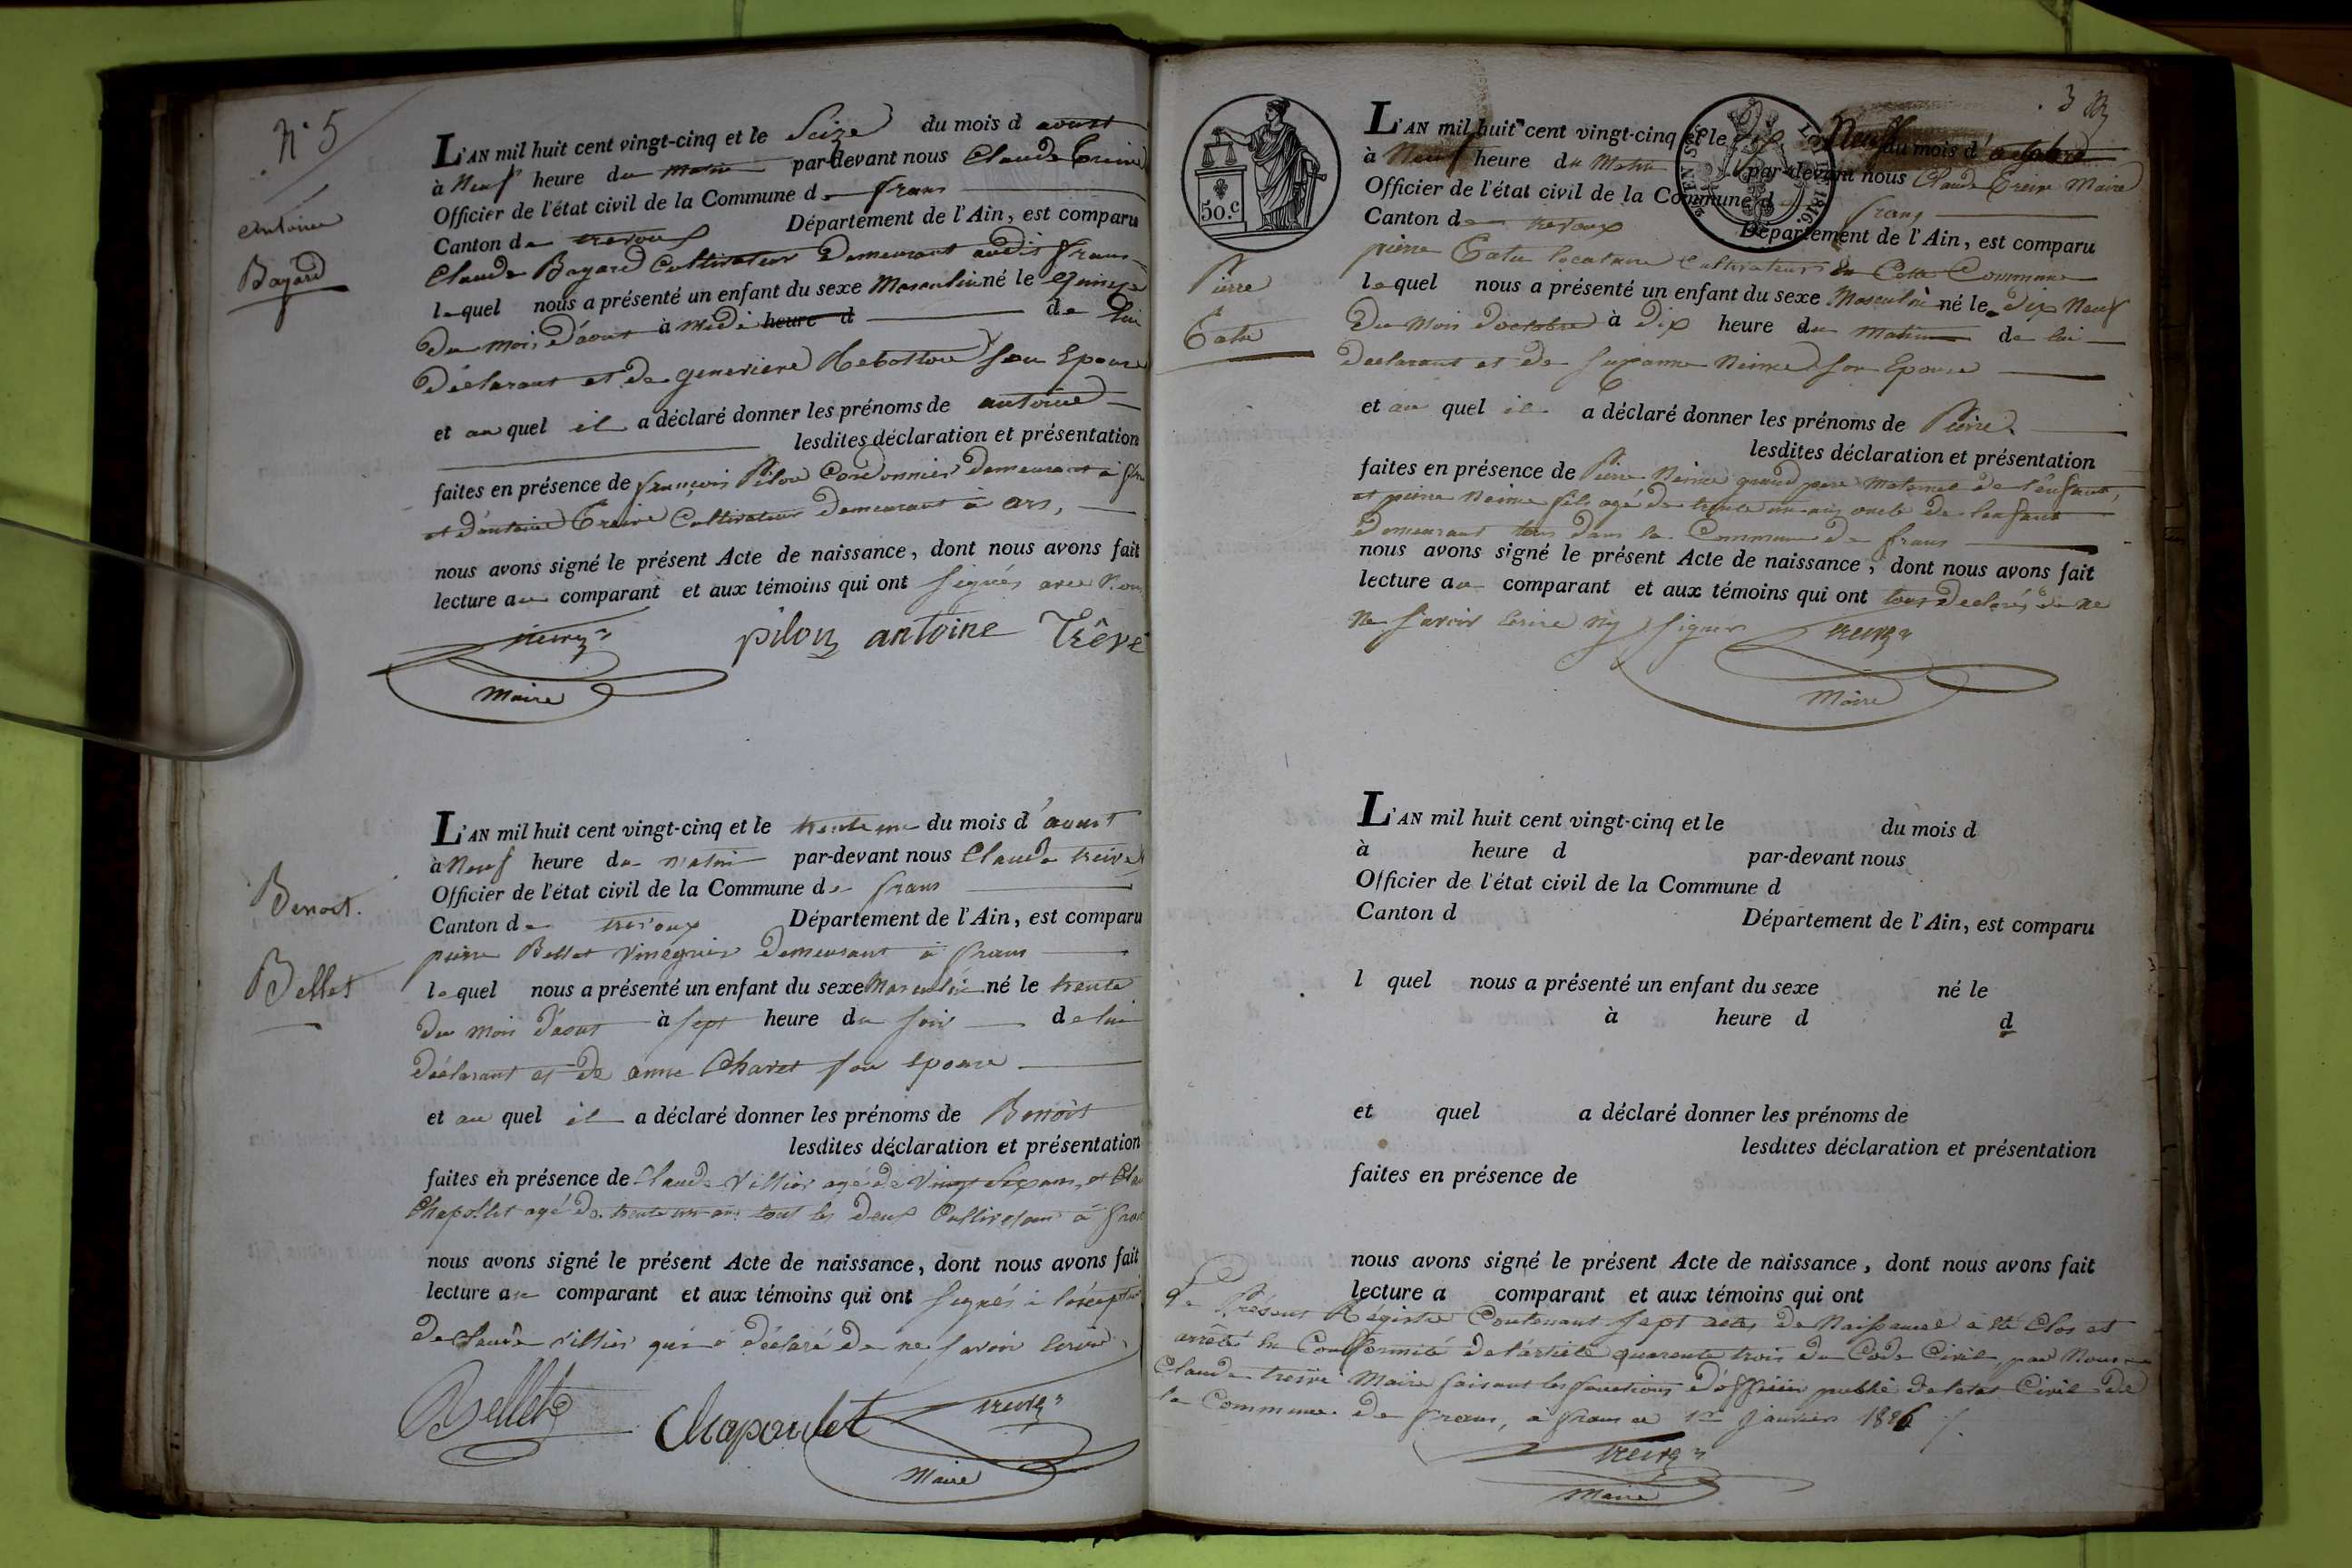 N° 5
antoine
Bayard
L'AN mil huit cent vingt-cinq et le Seize du mois d aoust
à Neuf heure du matin par-devant nous Claude Treive
Officier de l'état civil de la Commune de frans
Canton de trevoux Département de l'Ain, est comparu
Claude Bayard Cultivateur Demeurant audit frans
lequel nous a présenté un enfant du sexe Masculin né le quinze
Du mois d'aout à Midi heure d de lui
Déclarant et de genevieve son Epouse
et au quel il a déclaré donner les prénoms de antoine
lesdites déclaration et présentation
faites en présence de françois Pilon Cordonnier demeurant à
et d'antoine Treive Cultivateur demeurant à ars,
nous avons signé le présent Acte de naissance, dont nous avons fait
lecture au comparant et aux témoins qui ont signés avec Nous
pilon antoine Trêve
Maire
Benoit.
Bellet
L'AN mil huit cent vingt-cinq et le trente un du mois d'aoust
à Neuf heure du matin par-devant nous Claude treive
Officier de l'état civil de la Commune de frans
Canton de trevoux Département de l'Ain, est comparu
pierre Bellet Vinegrier demeurant à frans
lequel nous a présenté un enfant du sexe Masculin né le trente
Du mois d'aout à sept heure du soir de lui
déclarant et de anne Charet son epouse
et au quel il a déclaré donner les prénoms de Benoit
lesdites déclaration et présentation
faites en présence de Claude Villier agé de Vingt ans, et
Chapollet agé de trente un ans tout les deux à
nous avons signé le présent Acte de naissance, dont nous avons fait
lecture au comparant et aux témoins qui ont signés à
De Claude Villier qui a déclaré de ne savoir Ecrire
Bellet Chapoulet
Maire
3
50.c
1816.
L'AN mil huit cent vingt-cinq et le dix Neuf du mois d'octobre
à Neuf heure du Matin par-devant nous Claude Treive Maire
Officier de l'état civil de la Commune de frans
Canton de trevoux Département de l'Ain, est comparu
pierre locataire Cultivateur Cette Commune
Pierre
lequel nous a présenté un enfant du sexe Masculin né le dix Neuf
Du Mois d'octobre à Dix heure du matin de lui
declarant et de Suzanne son Epouse
et au quel il a déclaré donner les prénoms de Pierre
lesdites déclaration et présentation
faites en présence de Pierre grand pere Maternel de l'enfant,
et pierre fils agé de trente un ans oncle de lenfant
Demeurant tous dans la Commune de frans
nous avons signé le présent Acte de naissance, dont nous avons fait
lecture au comparant et aux témoins qui ont tous declarés de ne
ne savoir Ecrire ny signer
Maire
L'AN mil huit cent vingt-cinq et le du mois d
à heure d par-devant nous
Officier de l'état civil de la Commune d
Canton d Département de l'Ain, est comparu
l quel nous a présenté un enfant du sexe né le
à heure d d
et quel a déclaré donner les prénoms de
lesdites déclaration et présentation
faites en présence de
nous avons signé le présent Acte de naissance, dont nous avons fait
lecture a comparant et aux témoins qui ont
Le Présent Régistre Contenant sept actes de Naissance a été Clos et
arrêté En Conformité de l'article quarente trois du Code Civil, par Nous
Claude treive Maire faisant les fonctions d'officier public de l'etat Civil de
la Commune de frans, a frans ce 1er Janvier 1826
Maire